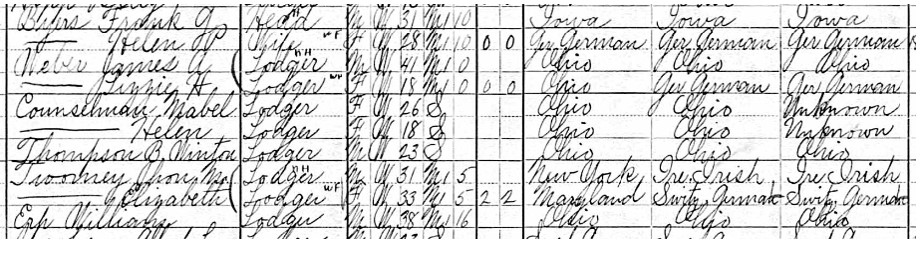 Byers Frank J Head M W 31 M1 10 Iowa Iowa Iowa
—— Helen Wife F W 28 M1 10 0 0 Ger German Ger German Ger German
Weber James A Lodger M W 41 M1 0 Ohio Ohio Ohio
—— Lizzie H Lodger F W 18 M1 0 0 0 Ohio Ger German Ger German
Counselman Mabel Lodger F W 26 S Ohio Ohio Unknown
—— Helen Lodger F W 18 S Ohio Ohio Unknown
Thompson B Winton Lodger M W 23 S Ohio Ohio Ohio
Lodger M W 31 M1 5 New York Ire Irish Ire Irish
—— Elizabeth Lodger F W 33 M1 5 2 2 Maryland Switz German Switz German
Epp William Lodger M W 38 M1 16 Ohio Ohio Ohio